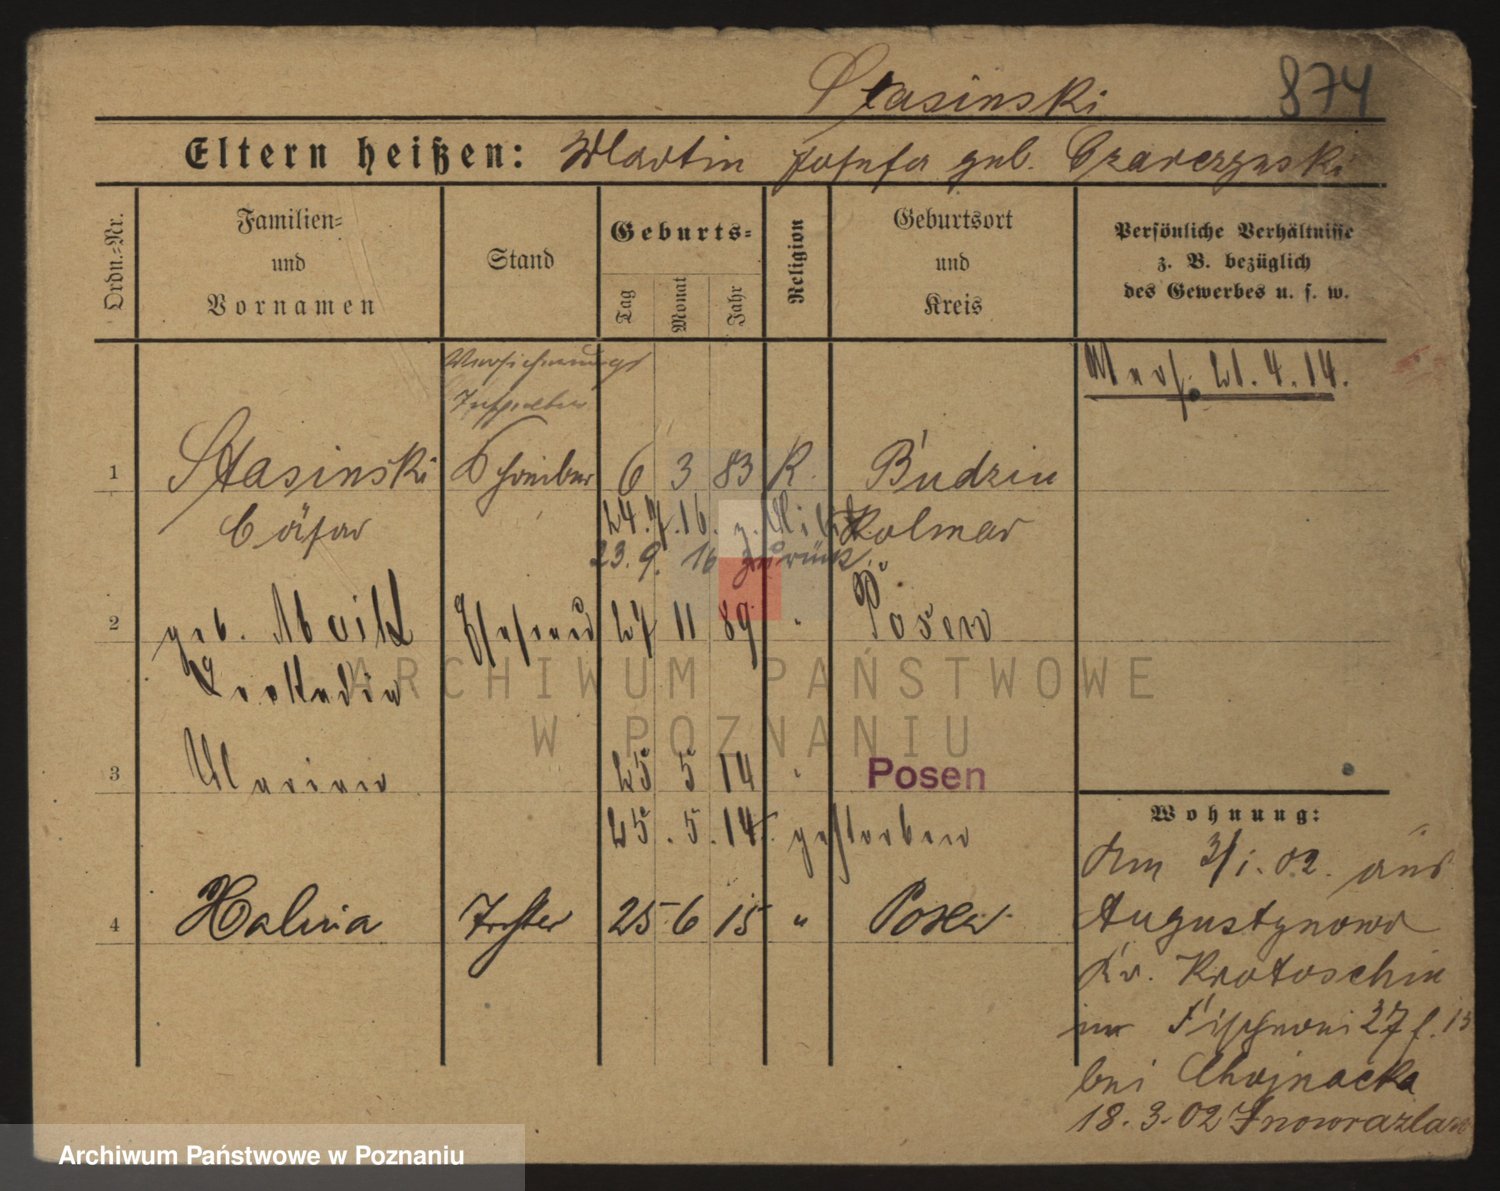 Stasinski 874
Eltern heißen: Martin Josefa geb. Czarczynski
Ordn.-Nr.
Familien-
und
Vornamen
Stand
Geburts-
Tag
Monat
Jahr
Religion
Geburtsort
und
Kreis
Persönliche Verhältnisse
z. B. bezüglich
des Gewerbes u. s. w.
Versicherungs
21.4.14.
1 Stasinski Schreiber 6 3 83 K. Budzin
Cäsar 24.7.16. z. Kolmar
23.9.16 zurück.
2 geb. Ehefrau 27 11 89 " Posen
Leokadia
3 Marian 25 5 14 " Posen
25.5.14. gestorben
4 Halina Tochter 25 6 15 " Posen
Wohnung:
Am 3/1.02. aus
Augustynowo
Kr. Krotoschin
27
bei Chojnacka
18.3.02 Inowrazlaw
ARCHIWUM PAŃSTWOWE
W POZNANIU
Archiwum Państwowe w Poznaniu